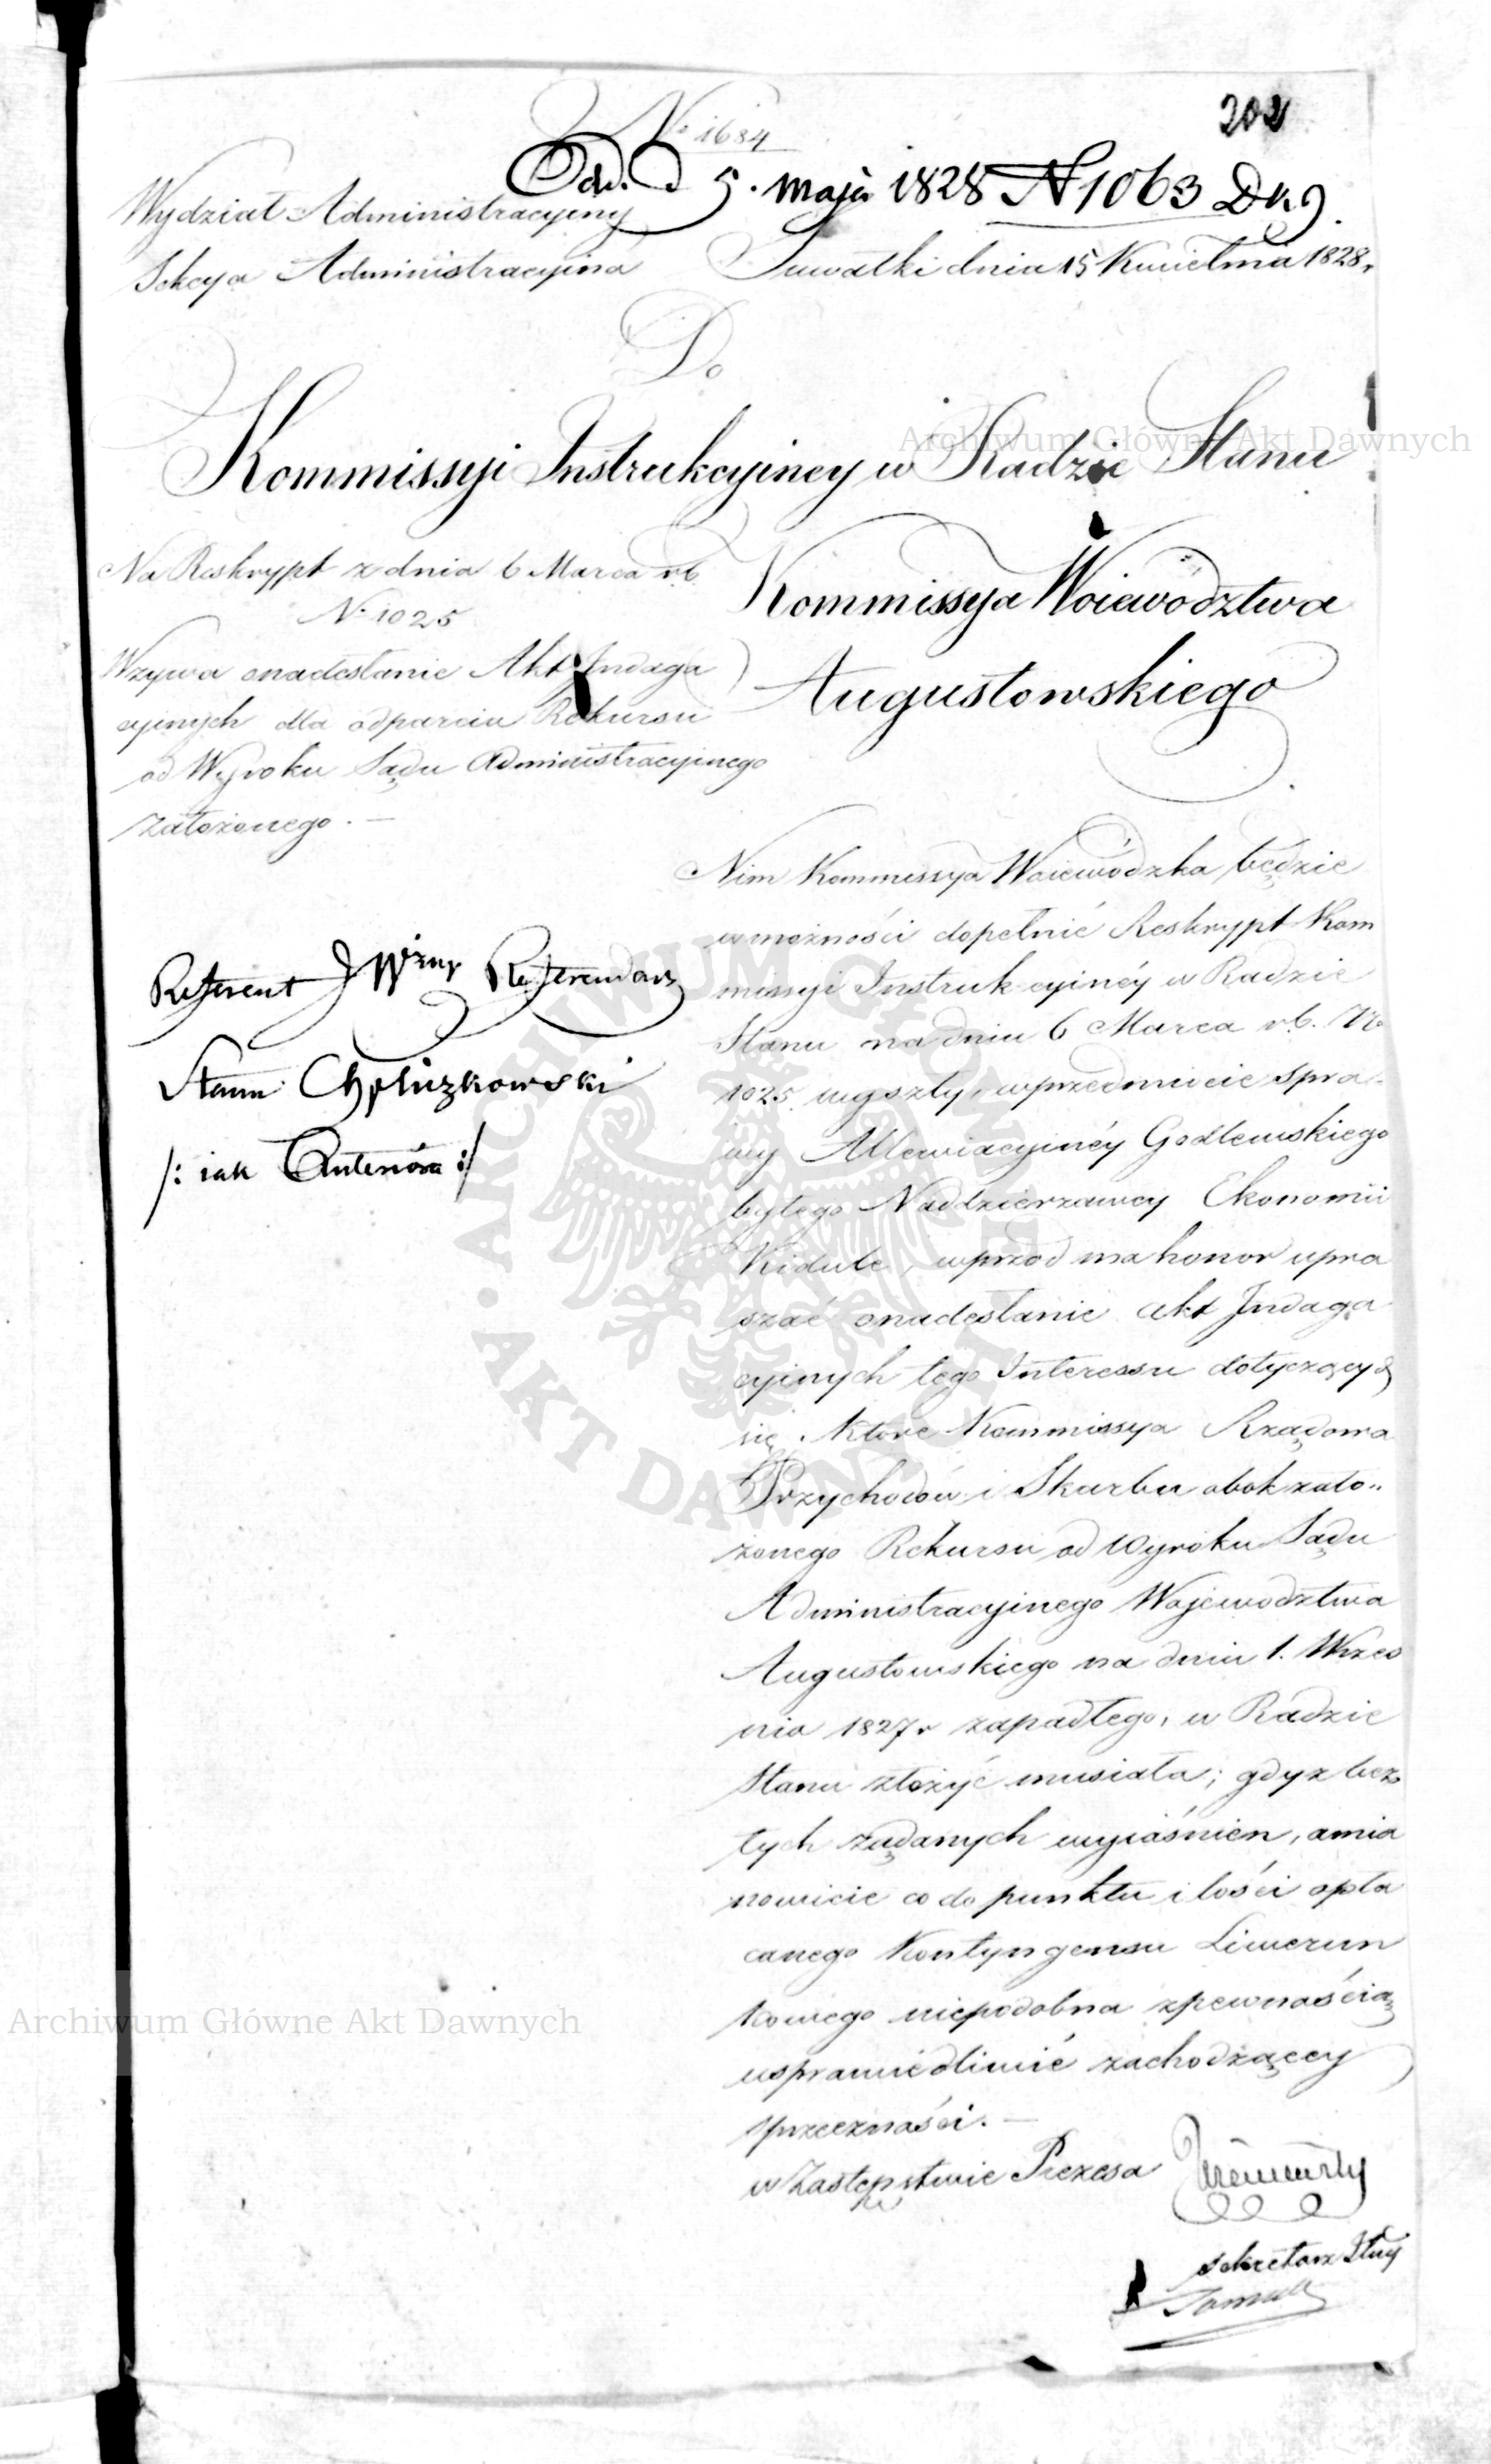 202
No 1684
Odd. d 5. maja 1828 N 1063 Dk.
Wydział Administracyiny
Sekcya Administracyina
Suwałki dnia 15 Kwietnia 1828 r
Do
Kommissyi Instrukcyiney w Radzie Stanu
Na Reskrypt z dnia 6 Marca rb.
No 1025
Wzywa onadesłanie Akt Indaga
cyinych dla odparcia Rekursu
od Wyroku Sądu Administracyinego
założonego. —
Referent JWżny Referendarz
Stanu Chpliczkowski
/: iak Anteriora :/
Kommissya Woiewództwa
Augustowskiego
Nim Kommissya Woiewódzka będzie
w możności dopełnić Reskrypt Kom
missyi Instrukcyinéy w Radzie
Stanu na dniu 6 Marca rb. No
1025 wyszły, w przedmiocie spra
wy Allewiacyinéy Godlewskiego
byłego Naddzierzawcy Ekonomii
Kidule, wprzód ma honor upra
szać onadesłanie Akt Indaga
cyinych tego Interessu dotyczących
się, które Kommissya Rządowa
Przychodów i Skarbu obok zało„
żonego Rekursu od Wyroku Sądu
Administracyinego Wojewodztwa
Augustowskiego na dniu 1. Wrześ
nia 1827 r zapadłego, w Radzie
Stanu złożyć musiała; gdyż bez
tych żądanych wyiaśnień, a mia
nowicie co do punktu ilości opła
canego Kontyngensu Liwerun
kowego niepodobna z pewnością
usprawiedliwić zachodzącey
sprzeczności. —
w Zastępstwie Prezesa
Sekretarz Jlny
Archiwum Główne Akt Dawnych
Archiwum Główne Akt Dawnych
ARCHIWUM GŁÓWNE
AKT DAWNYCH